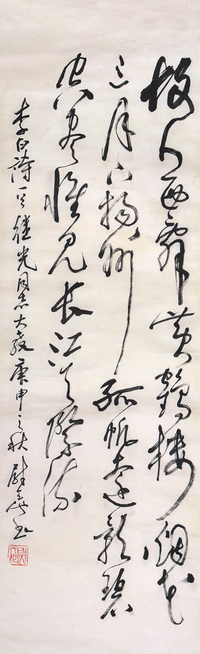 故人西辞黄鹤楼烟花
三月下扬州孤帆远影碧
空尽惟见长江天际流
李白诗一首继光同志大教庚申之秋尉天池